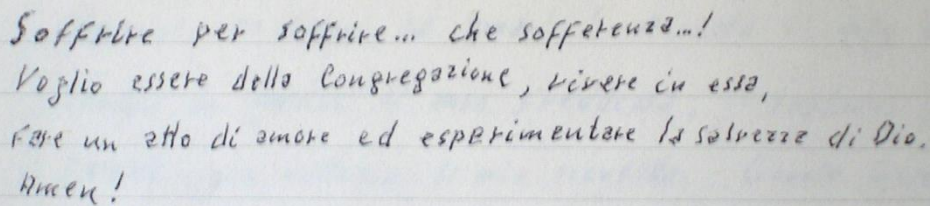 Soffrire per soffrire... che sofferenza...!
Voglio essere della Congregazione, vivere in essa,
fare un atto di amore ed esperimentare la salvezza di Dio.
Amen!